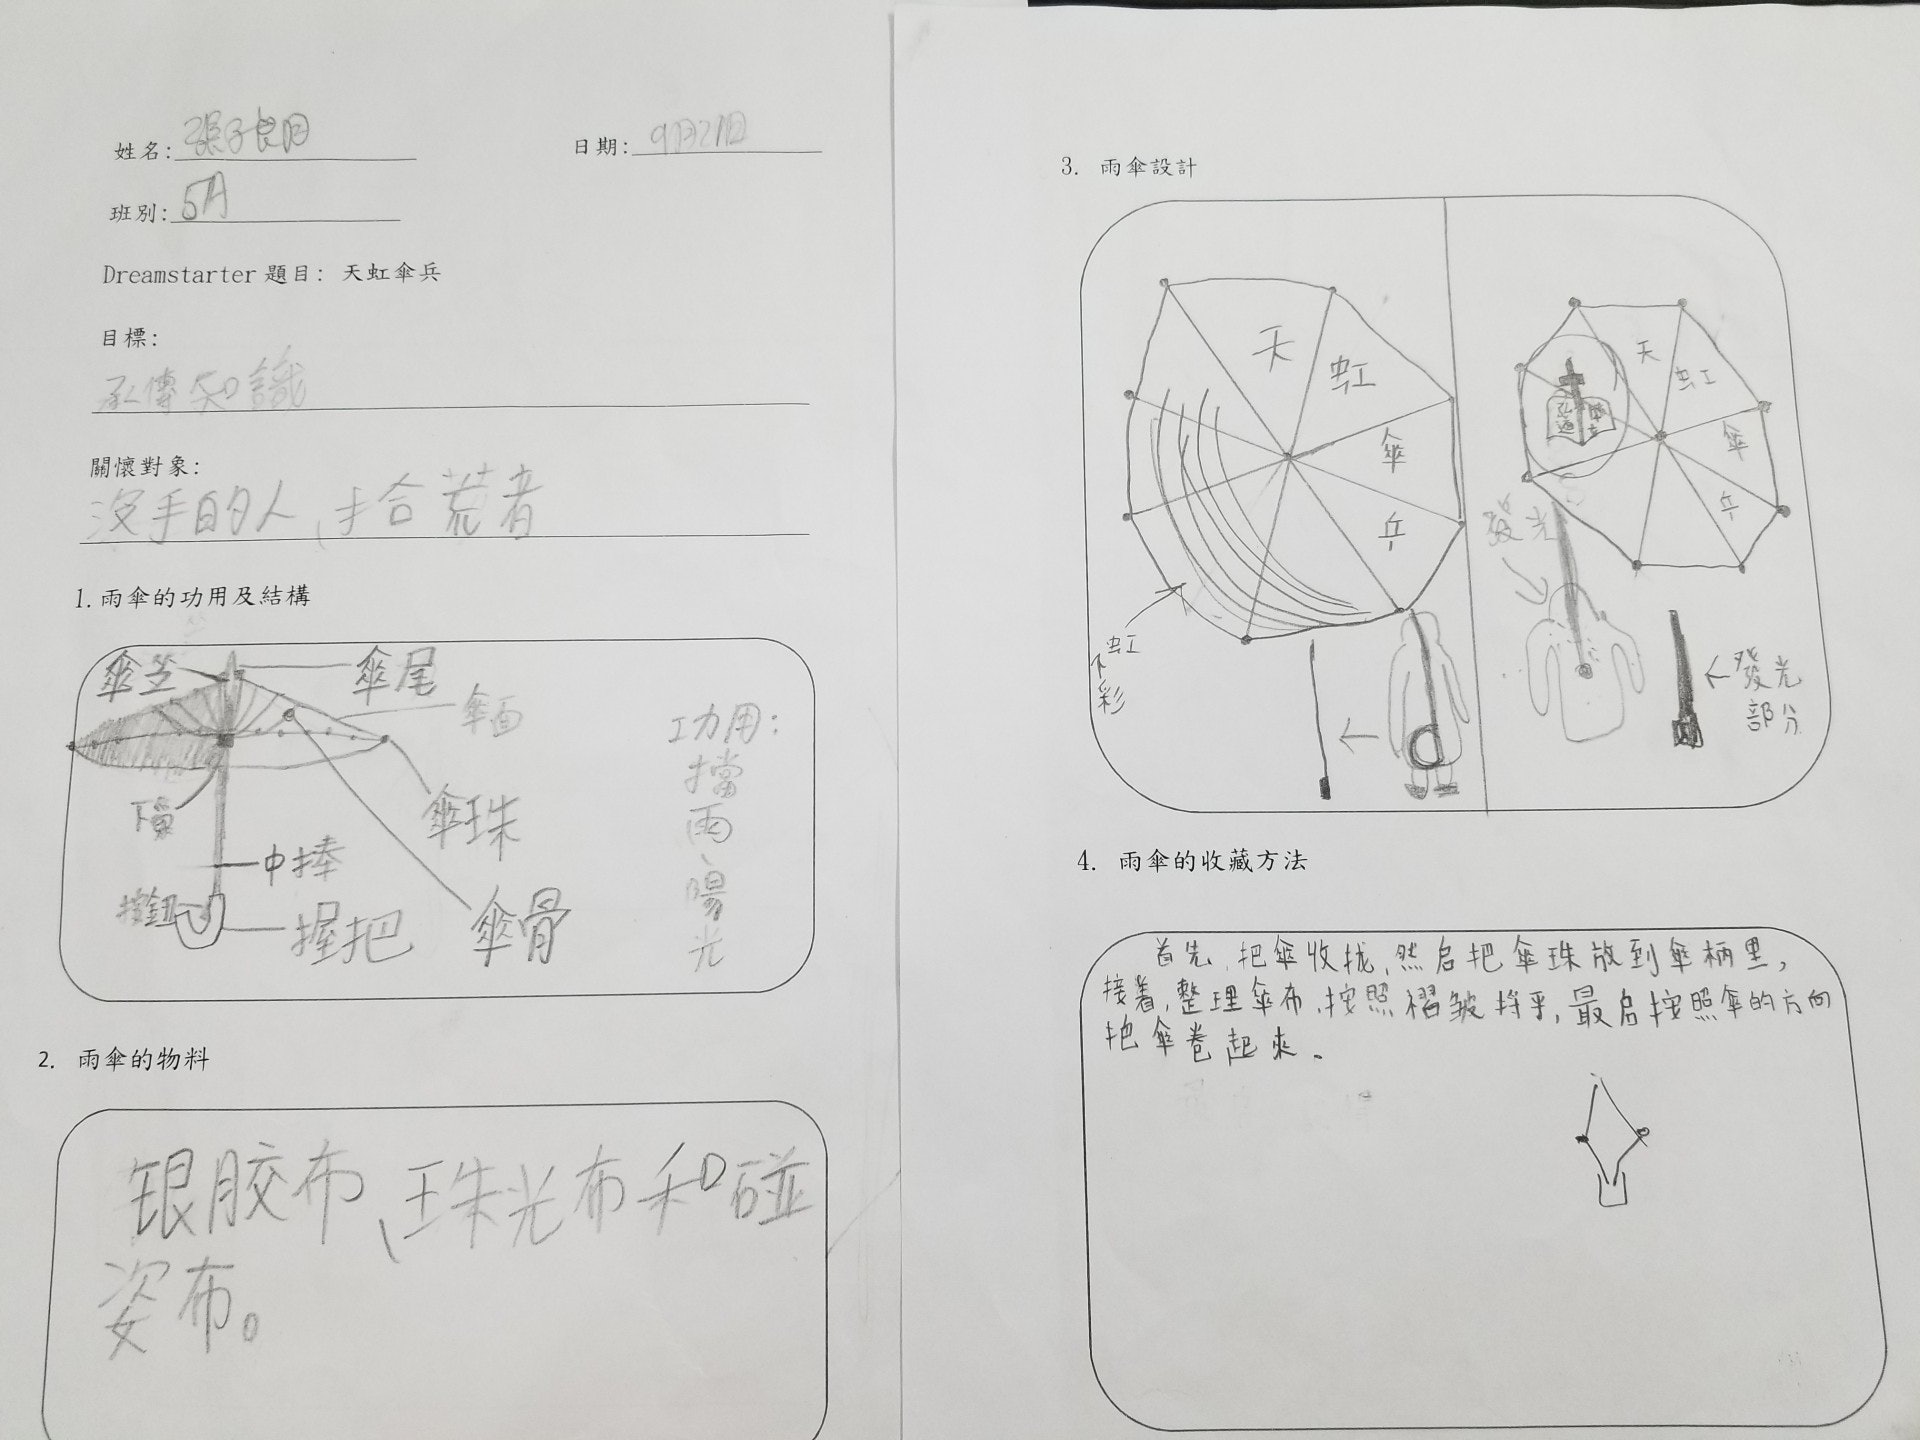 姓名: 張子良
日期: 9月21日
班別: 5A
Dreamstarter 題目: 天虹傘兵
目標:
承傳知識
關懷對象:
沒手的人、拾荒者
1. 雨傘的功用及結構
傘尾
傘面
傘珠
傘骨
中捧
按鈕
握把
功用:
擋
雨
、
陽
光
2. 雨傘的物料
银胶布、珠光布和碰
姿布。
3. 雨傘設計
天
虹
傘
兵
虹
彩
天
虹
傘
兵
發光
發光
部分
4. 雨傘的收藏方法
首先,把傘收拢,然后把傘珠放到傘柄里,
接着,整理傘布,按照褶皱捋平,最后按照傘的方向
把傘卷起來.